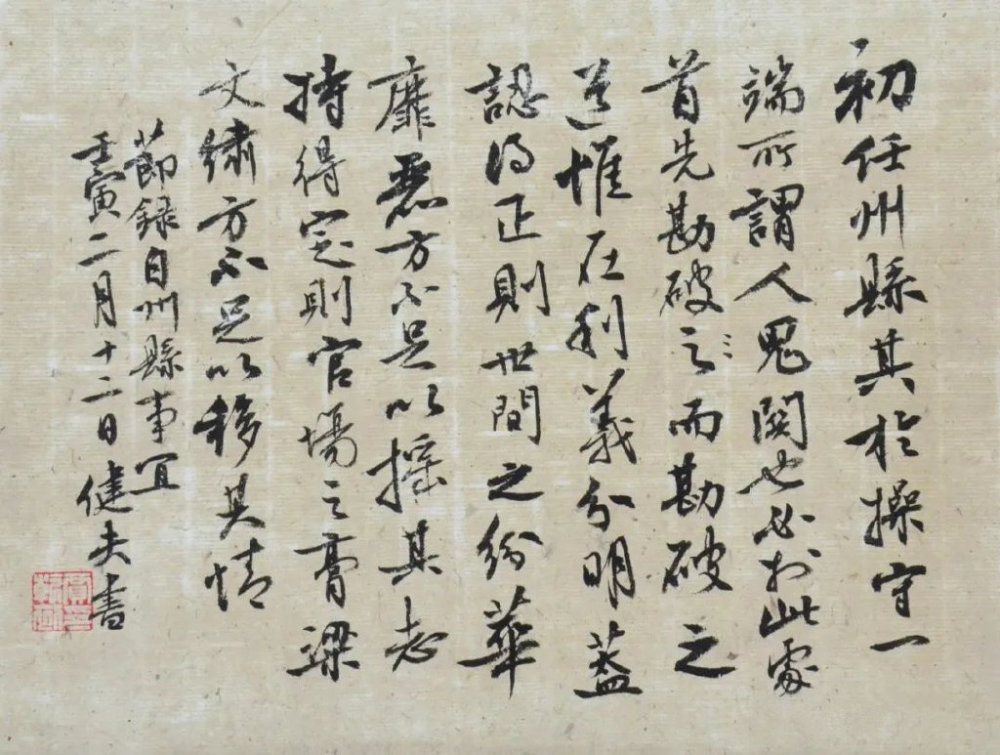 初任州縣其於操守一
端所謂人鬼関也必於此處
首先勘破之而勘破之
道惟在利義分明蓋
認得正則世間之紛華
靡麗方不足以摇其志
持得定則官場之膏粱
文繡方不足以移其情
節録自州縣事宜
壬寅二月十二日健夫書